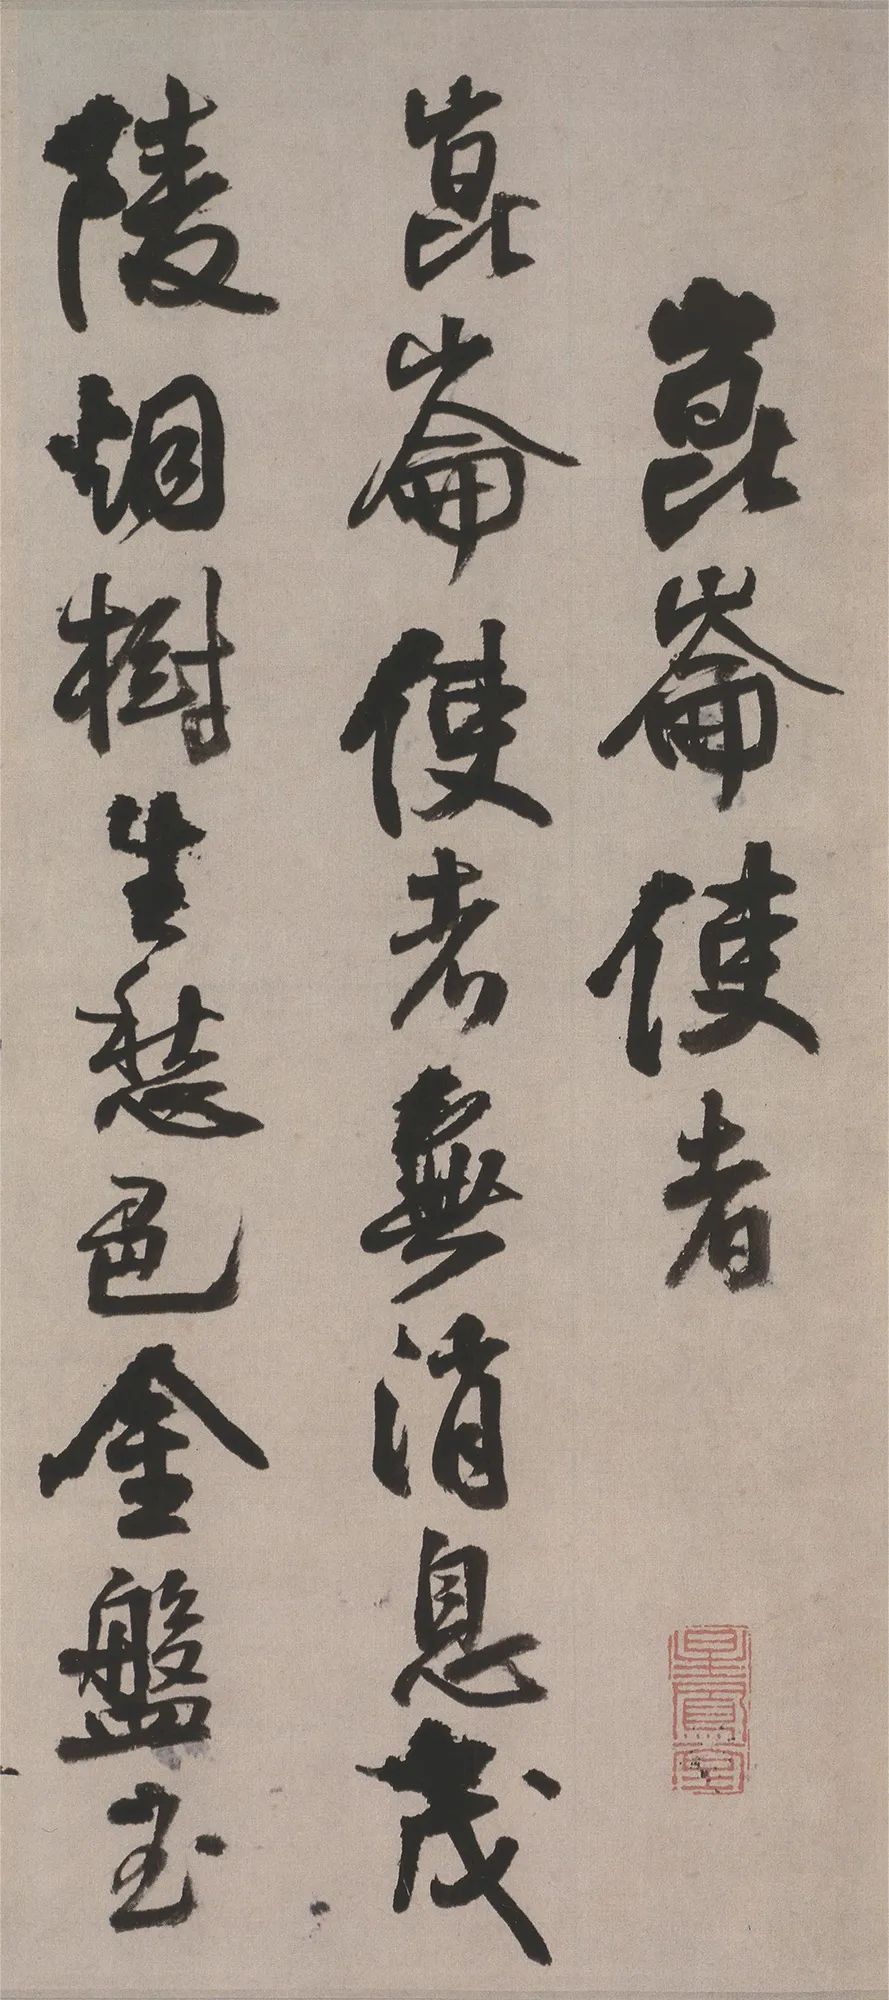 崑崙使者
崑崙使者無消息茂
陵烟樹生愁色金盤玉